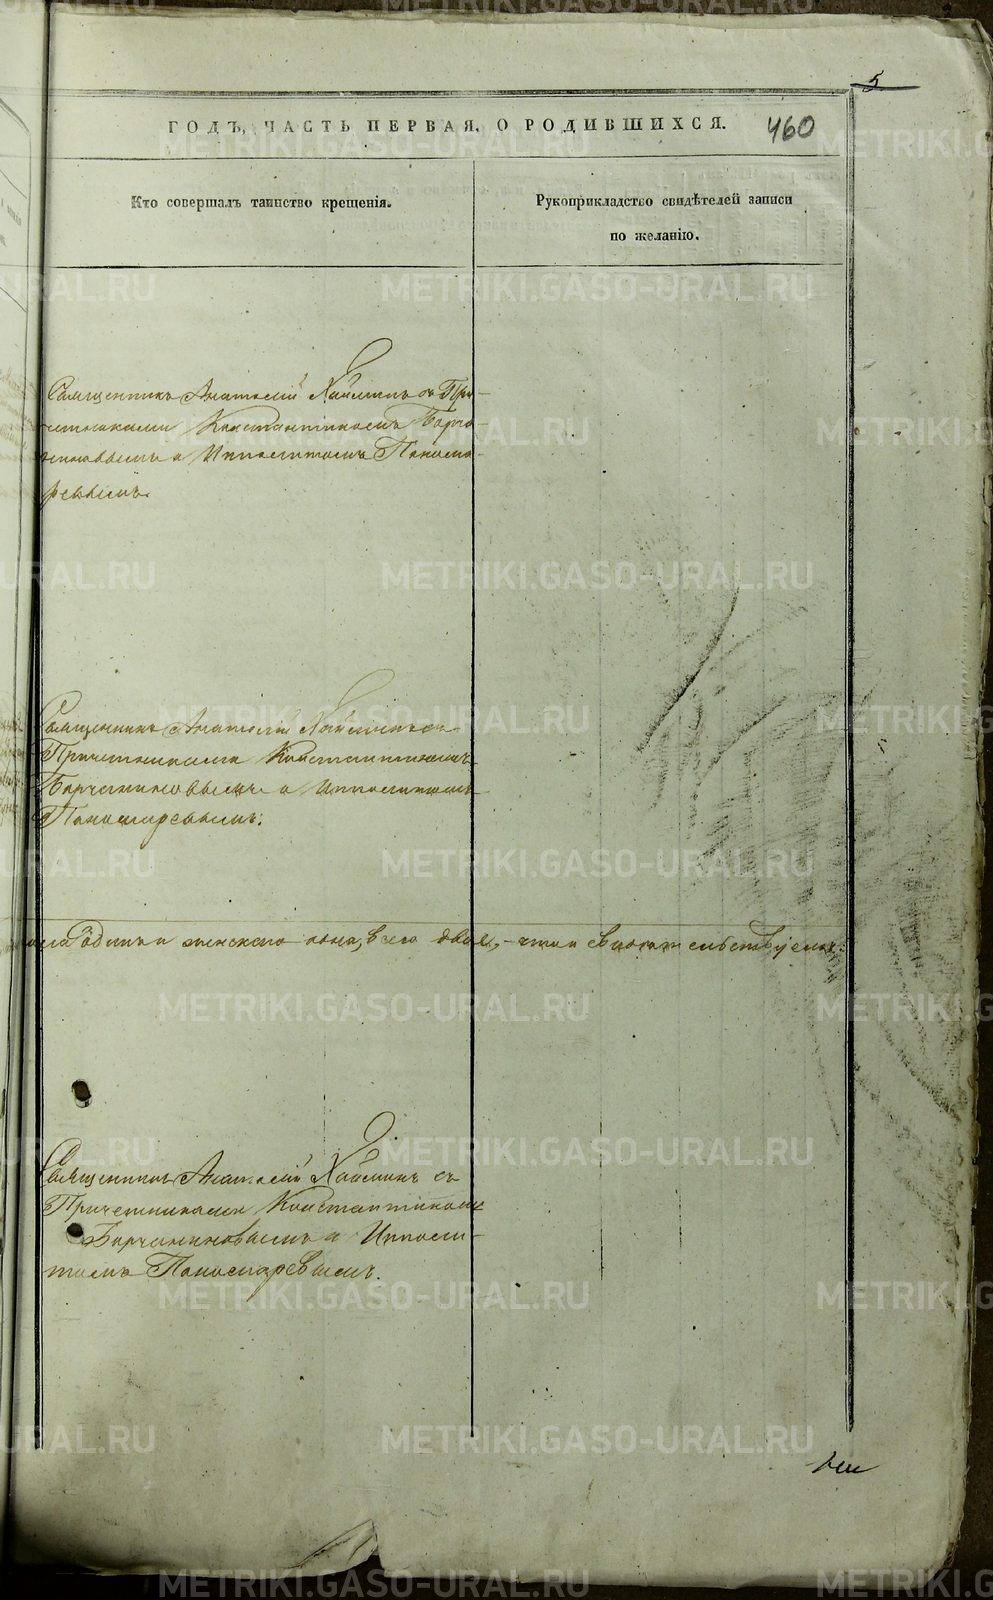 5
ГОДЪ, ЧАСТЬ ПЕРВАЯ, О РОДИВШИХСЯ. 460
Кто совершалъ таинство крещенія.
Рукоприкладство свидѣтелей записи
по желанію.
Священникъ Анатолій Хаймин съ При-
четниками Константиномъ Борча-
ниновымъ и Ипполитомъ Понома-
ревымъ.
Священникъ Анатолій Хайминъ съ
Причетниками Константиномъ
Борчаниновымъ и Ипполитомъ
Пономаревымъ.
одинъ и женскаго одна, всего двое, - въ томъ свидѣтельствуемъ:
Священникъ Анатолій Хайминъ съ
Причетниками Константиномъ
Борчаниновымъ и Ипполи-
томъ Пономаревымъ.
METRIKI.GASO-URAL.RU